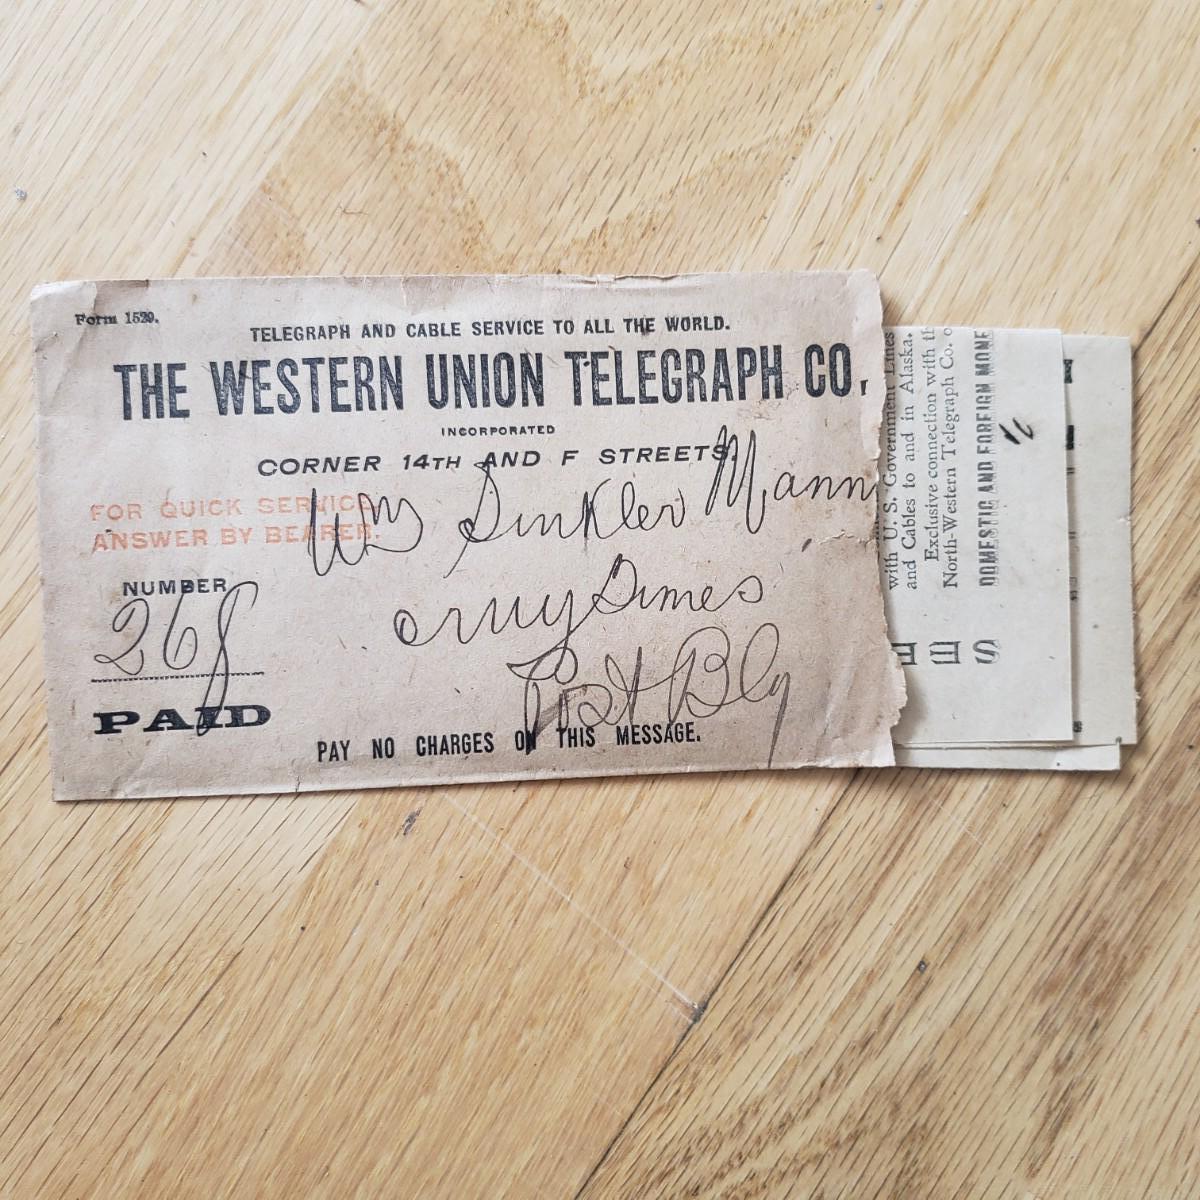 Form 1529.
TELEGRAPH AND CABLE SERVICE TO ALL THE WORLD.
THE WESTERN UNION TELEGRAPH CO.,
INCORPORATED
CORNER 14TH AND F STREETS.
FOR QUICK SERVICE
ANSWER BY BEARER.
Wm Sinkler Mann
NUMBER
268
PAID
PAY NO CHARGES ON THIS MESSAGE.
with U. S. Government Lines
and Cables to and in Alaska.
Exclusive connection with
North-Western Telegraph Co.
DOMESTIC AND FOREIGN